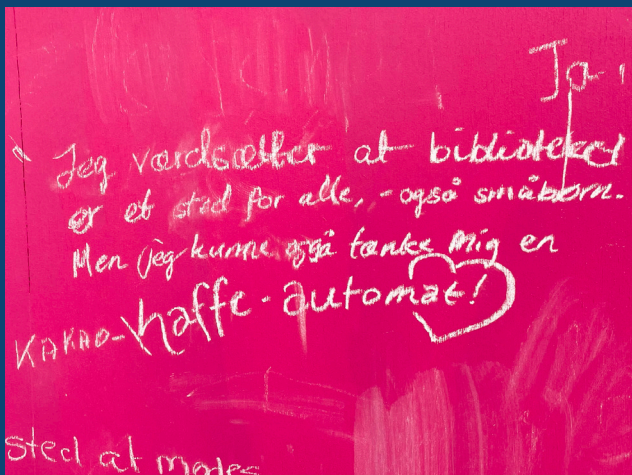 Ja
Jeg værdsætter at biblioteket
er et sted for alle, - også småbørn.
Men jeg kunne også tænke mig en
KAKAO-kaffe-automat!
sted at mødes